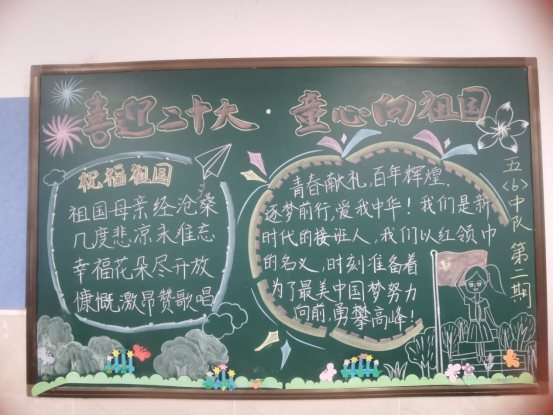 喜迎二十大 童心向祖国
祝福祖国
祖国母亲经沧桑
几度悲凉永难忘
幸福花朵尽开放
慷慨激昂赞歌唱
青春献礼,百年辉煌.
逐梦前行,爱我中华!我们是新
时代的接班人,我们以红领巾
的名义,时刻准备着
为了最美中国梦努力
向前,勇攀高峰!
五(6)中队 第二期